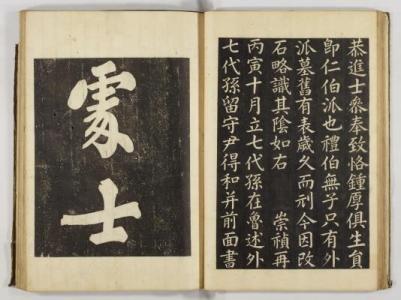 恭進士參奉致恪鍾厚俱生員
卽仁伯派也禮伯無子只有外
派墓舊有表歲久而刓今因改
石略識其陰如右 崇禎再
丙寅十月立七代孫在魯述外
七代孫留守尹得和并前面書
處士